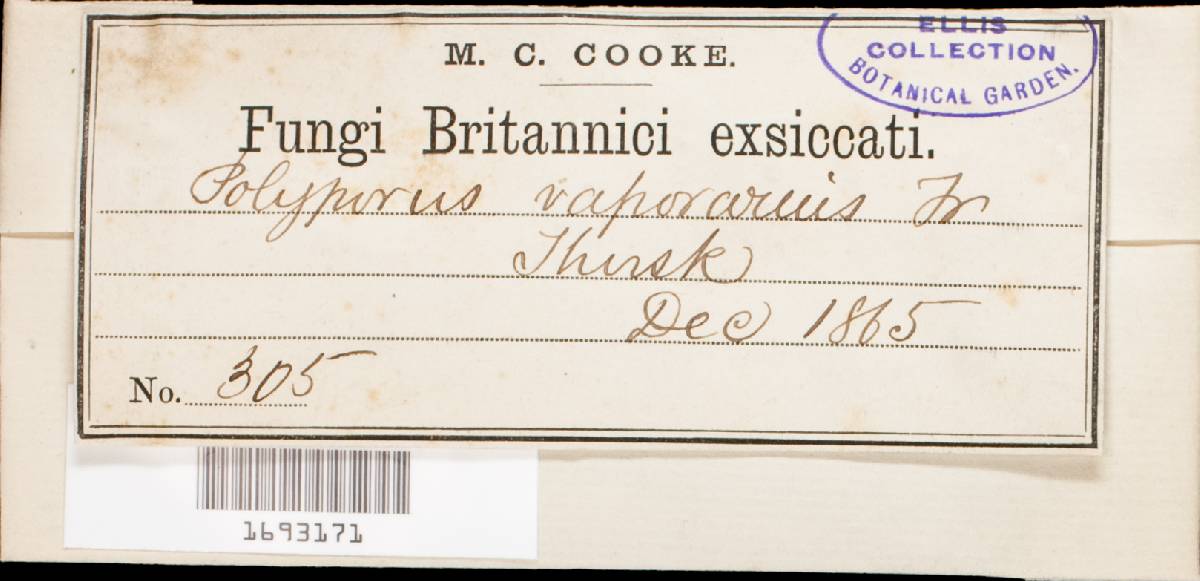 M. C. COOKE.
ELLIS
COLLECTION
BOTANICAL GARDEN.
Fungi Britannici exsiccati.
Polyporus vaporarius Fr
Thirsk
Dec 1865
No. 305
1693171